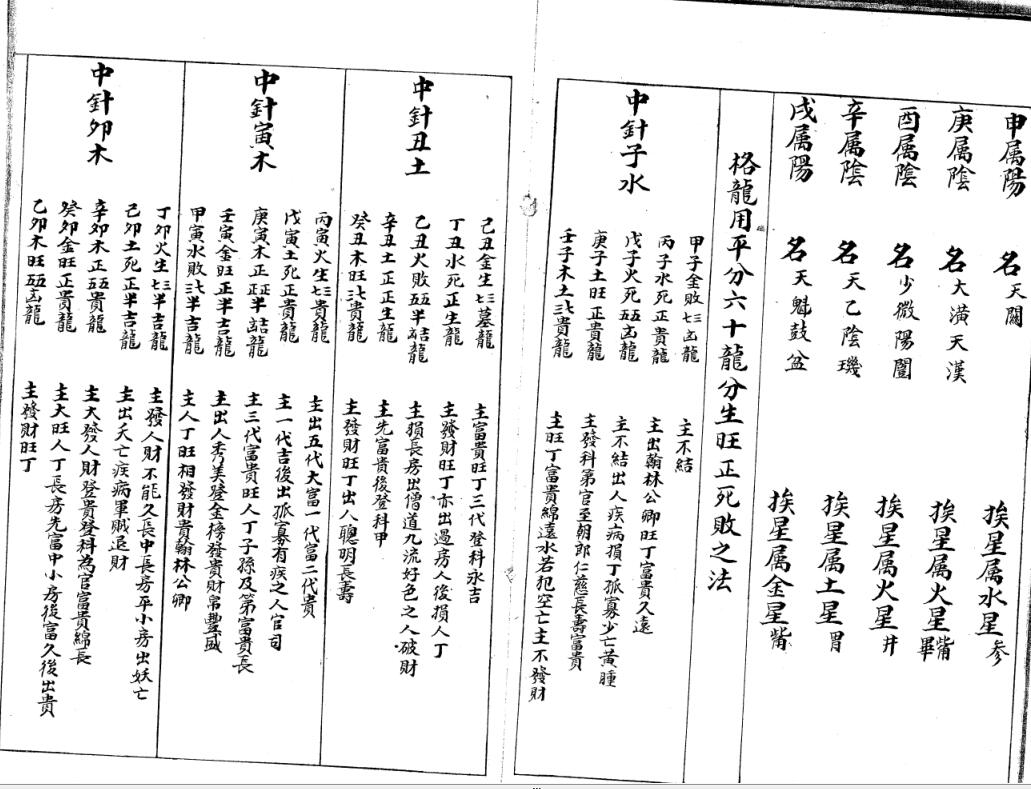 申属陽 名天關 挨星属水星参
庚属陰 名大潢天漢 挨星属火星觜畢
酉属陰 名少微陽闔 挨星属火星井
辛属陰 名天乙陰璣 挨星属土星胃
戌属陽 名天魁鼓盆 挨星属金星觜
格龍用平分六十龍分生旺正死敗之法
中針子水
甲子金敗七三凶龍 主不結
丙子水死正貴龍 主出翰林公卿旺丁富貴久遠
戊子火死五五凶龍 主不結出人疾病損丁孤寡少亡黃腫
庚子土旺正貴龍 主發科第官至朝郎仁慈長壽富貴
壬子木土三七貴龍 主旺丁富貴綿遠水若犯空亡主不發財
中針丑土
己丑金生七三墓龍 主富貴旺丁三代登科永吉
丁丑水死正生龍 主發財旺丁亦出過房人後損人丁
乙丑火敗五五半吉龍 主損長房出僧道九流好色之人破財
辛丑土正正生龍 主先富貴後登科甲
癸丑木旺三七貴龍 主發財旺丁出人聰明長壽
中針寅木
丙寅火生七三貴龍 主出五代大富一代富二代貴
戊寅土死正貴龍 主一代吉後出孤寡有疾之人官司
庚寅木正正半吉龍 主三代富貴旺人丁子孫及第富貴長
壬寅金旺正半吉龍 主出人秀美登金榜發貴財帛豐盛
甲寅水敗三七半吉龍 主人丁旺相發財貴翰林公卿
中針卯木
丁卯火生七三半吉龍 主發人財不能久長中長房平小房出妖亡
己卯土死正半吉龍 主出夭亡疾病軍賊退財
辛卯木正五五貴龍 主大發人財登貴登科為官富貴綿長
癸卯金旺正貴龍 主大旺人丁長房先富中小房後富久後出貴
乙卯木旺五五凶龍 主發財旺丁